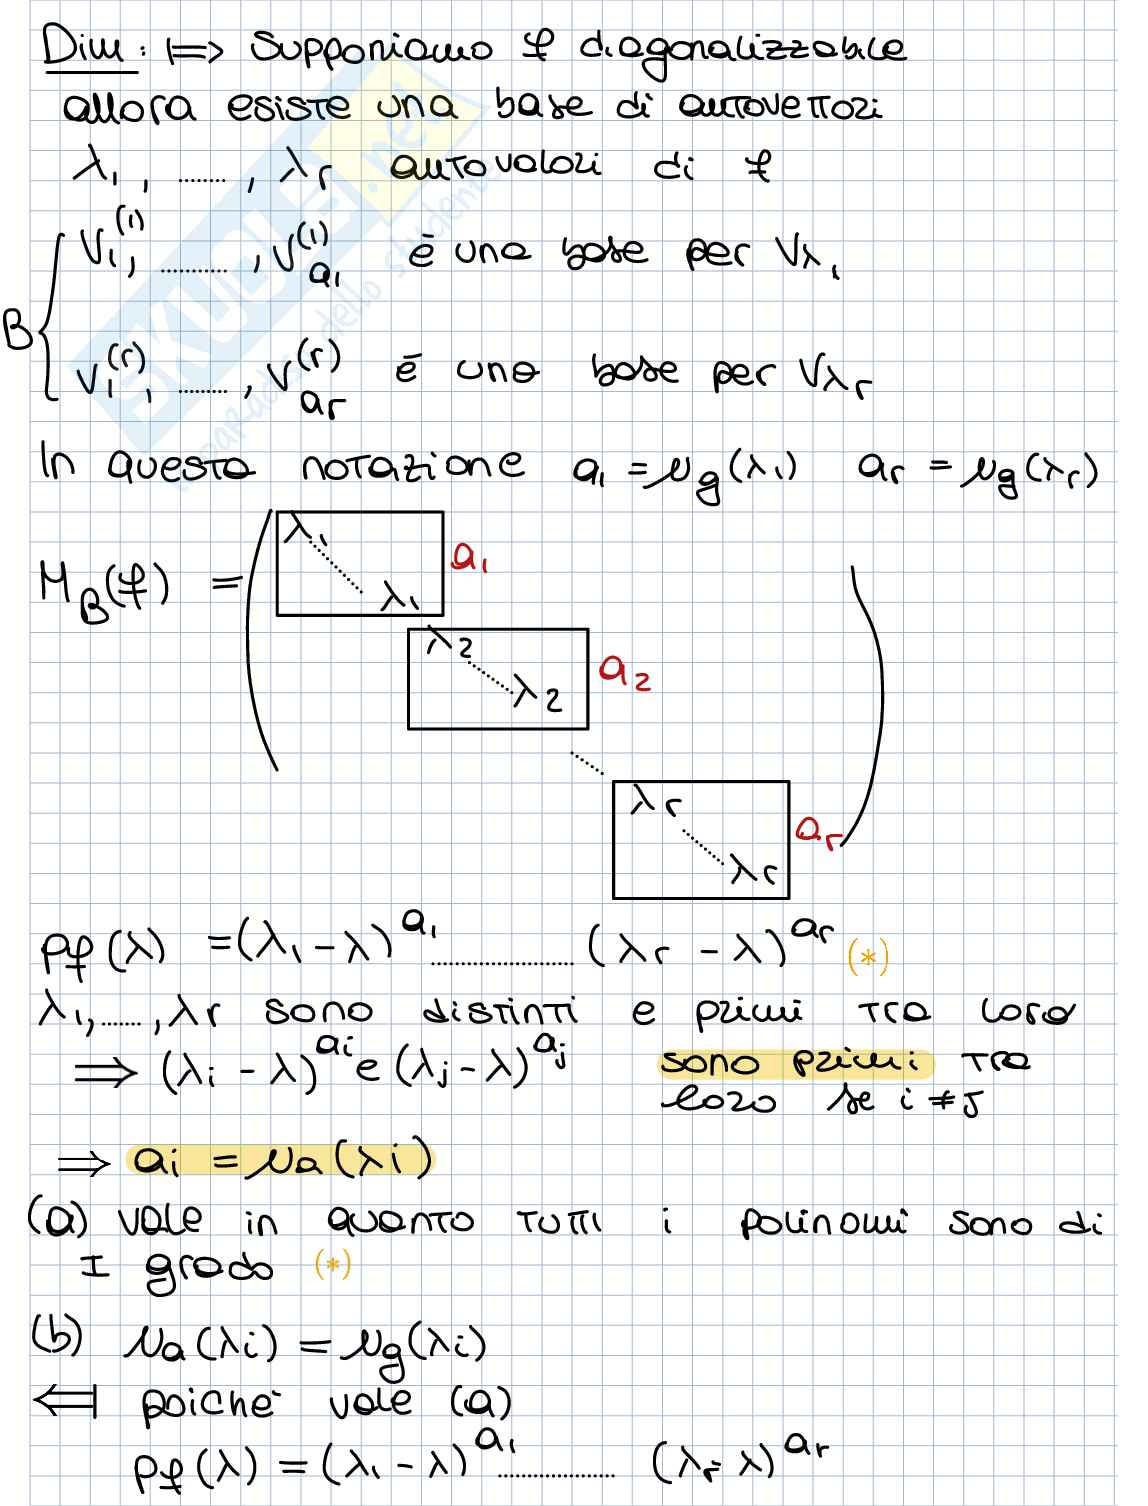 Dim: |⟹ Supponiamo φ diagonalizzabile
allora esiste una base di autovettori
λ₁, ........, λr autovalori di φ
B { V₁⁽¹⁾, ..........., V⁽¹⁾a₁ è una base per Vλ₁
V₁⁽ʳ⁾, ........, V⁽ʳ⁾ar è una base per Vλr
In questa notazione a₁ = μg(λ₁) ar = μg(λr)
M_B(φ) = ( λ₁ ........ λ₁ a₁
λ₂ ...... λ₂ a₂
.....
λr ...... λr ar )
pφ(λ) = (λ₁ - λ)^a₁ .................... (λr - λ)^ar (*)
λ₁, ......, λr sono distinti e primi tra loro
⟹ (λi - λ)^ai e (λj - λ)^aj sono primi tra
loro se i ≠ j
⟹ ai = μa(λi)
(a) vale in quanto tutti i polinomi sono di
I grado (*)
(b) μa(λi) = μg(λi)
⟸| poiché vale (a)
pφ(λ) = (λ₁ - λ)^a₁ ................. (λr - λ)^ar
SKUOLA.net
il paradiso dello studente